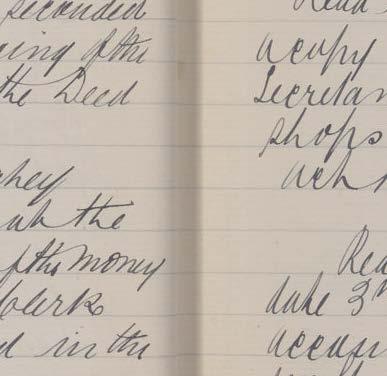 seconded
ing of the
the Deed
hey
ah the
of the money
Clerks
d in the
Read
occupy
Secretar
shops
ach
Rea
date 3rd